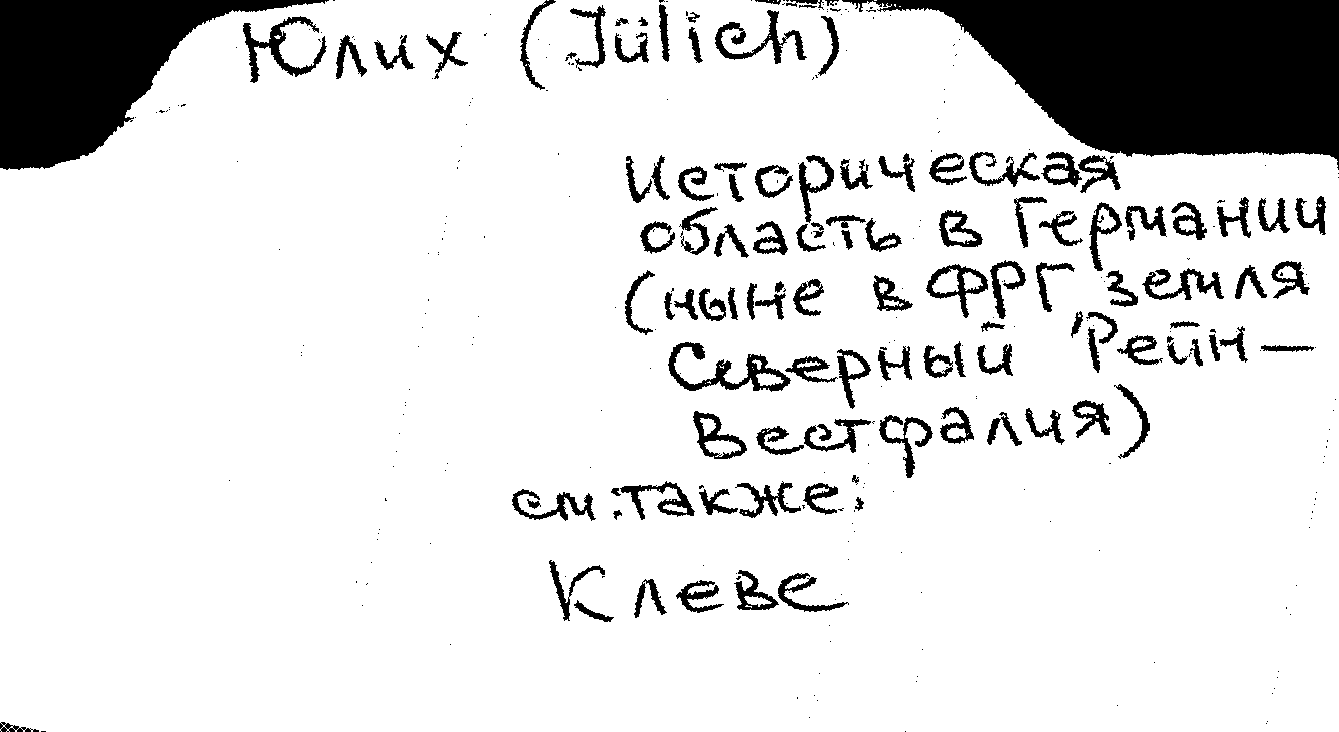 Юлих (Jülich)
Историческая
область в Германии
(ныне в ФРГ, земля
Северный Рейн—
Вестфалия)
см. также:
Клеве